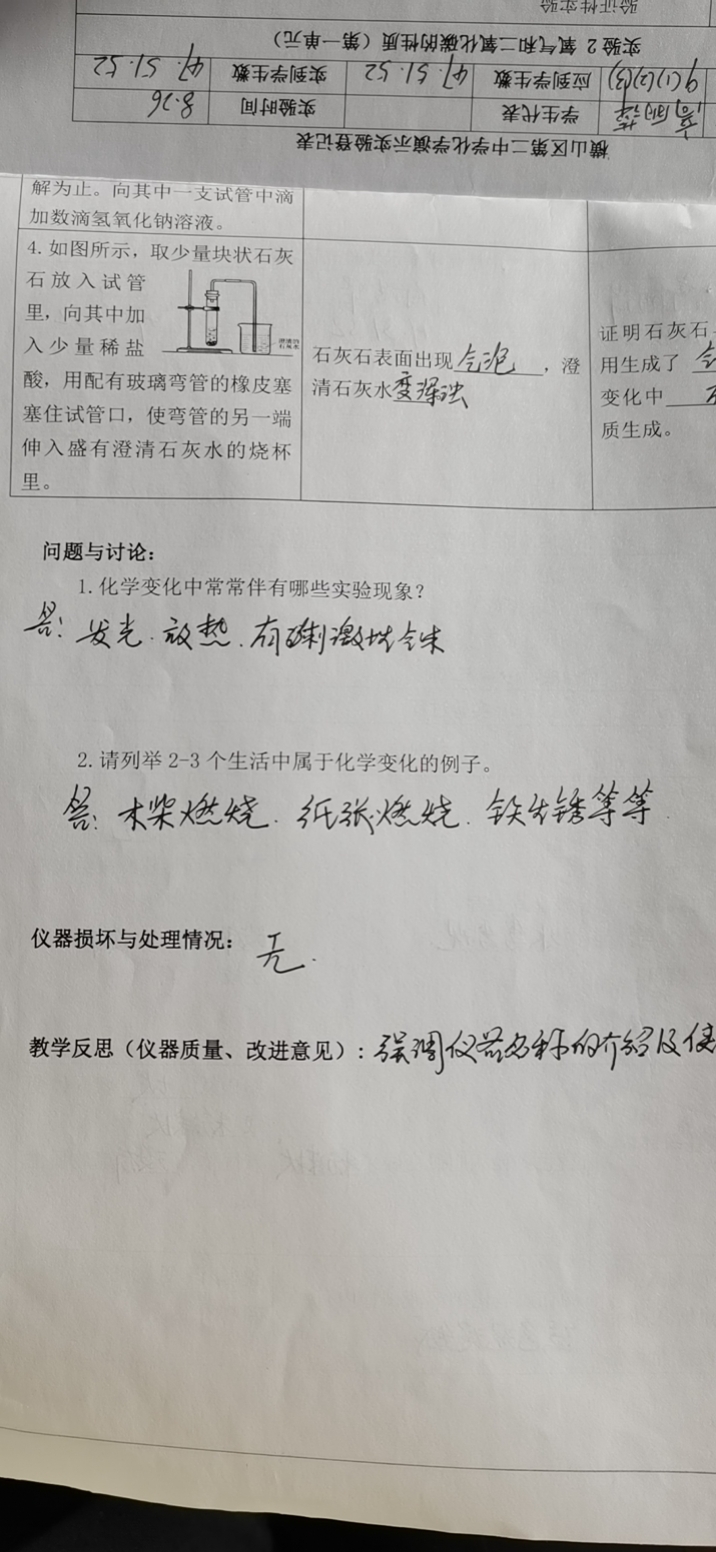 横山区第二中学化学演示实验登记表
学生代表 实验时间 8.26
9(1)(2)(3) 应到学生数 47.51.52 实到学生数 47.51.52
实验 2 氧气和二氧化碳的性质（第一单元）
验证性实验
解为止。向其中一支试管中滴
加数滴氢氧化钠溶液。
4. 如图所示，取少量块状石灰
石放入试管
里，向其中加
入少量稀盐
酸，用配有玻璃弯管的橡皮塞
塞住试管口，使弯管的另一端
伸入盛有澄清石灰水的烧杯
里。
澄清的
石灰水
石灰石表面出现气泡，澄
清石灰水变浑浊
证明石灰石
用生成了
变化中
质生成。
问题与讨论：
1. 化学变化中常常伴有哪些实验现象？
答：发光.放热.有刺激性气味
2. 请列举 2-3 个生活中属于化学变化的例子。
答：木柴燃烧.纸张燃烧.铁生锈等等.
仪器损坏与处理情况：无.
教学反思（仪器质量、改进意见）：强调仪器名称的介绍及使